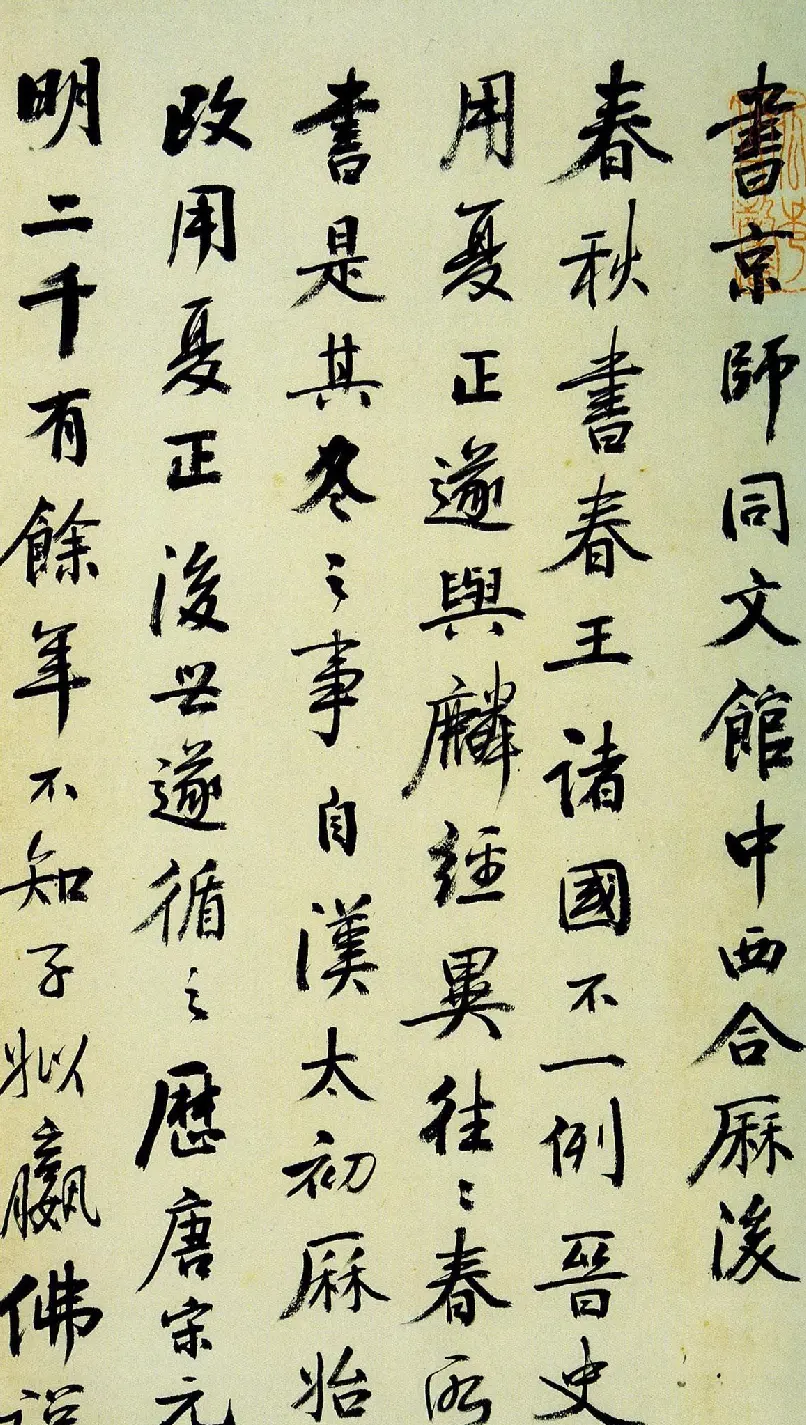 書京師同文館中西合厤後
春秋書春王諸國不一例晉史
用夏正遂與麟經異往〻春所
書是其冬之事自漢太初厤始
改用夏正後世遂循之歷唐宋元
明二千有餘年不知子姒嬴佛說